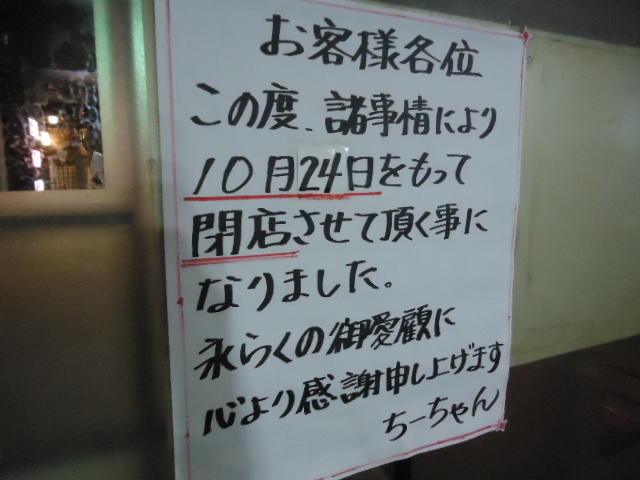 お客様各位
この度、諸事情により
10月24日をもって
閉店させて頂く事に
なりました。
永らくの御愛顧に
心より感謝申し上げます
ちーちゃん